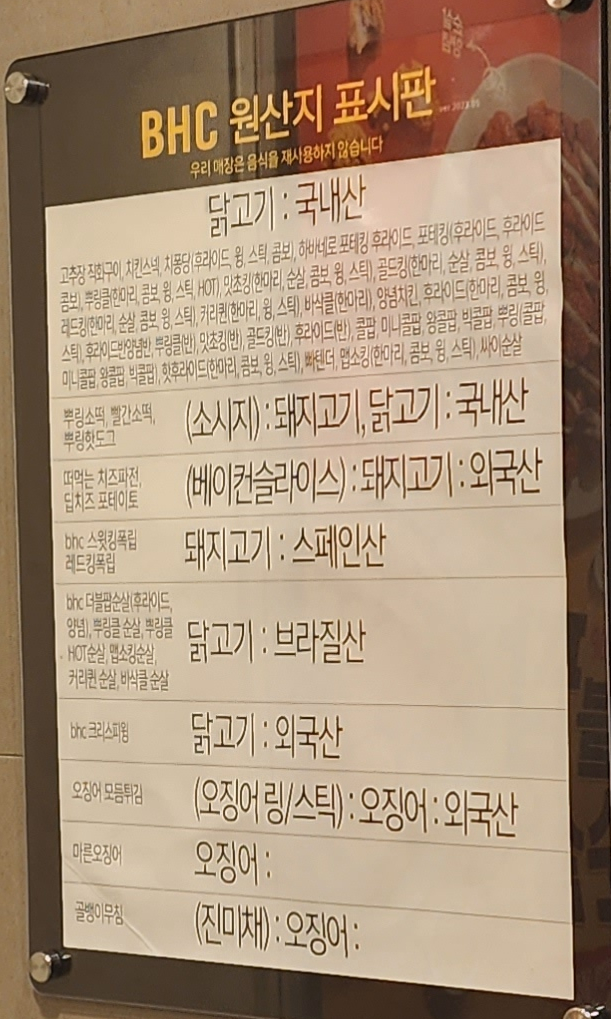 BHC 원산지 표시판
우리 매장은 음식을 재사용하지 않습니다
닭고기 : 국내산
고추장 직화구이, 치킨스넥, 치퐁당(후라이드, 윙, 스틱, 콤보), 하바네로 포테킹 후라이드, 포테킹(후라이드, 후라이드
콤보), 뿌링클(한마리, 콤보, 윙, 스틱, HOT) 맛초킹(한마리, 순살, 콤보, 윙, 스틱), 골드킹(한마리, 순살, 콤보, 윙, 스틱),
레드킹(한마리, 순살, 콤보, 윙, 스틱), 커리퀸(한마리, 윙, 스틱), 바삭클(한마리), 양념치킨, 후라이드(한마리, 콤보, 윙,
스틱), 후라이드반양념반, 뿌링클(반), 맛초킹(반), 골드킹(반), 후라이드(반), 콜팝, 미니콜팝, 왕콜팝, 빅콜팝, 뿌링(콜팝,
미니콜팝, 왕콜팝, 빅콜팝), 핫후라이드(한마리, 콤보, 윙, 스틱), 빠텐더, 맵소킹(한마리, 콤보, 윙, 스틱), 싸이순살
뿌링소떡, 빨간소떡,
뿌링핫도그
(소시지) : 돼지고기, 닭고기 : 국내산
떠먹는 치즈파전,
딥치즈 포테이토
(베이컨슬라이스) : 돼지고기 : 외국산
bhc 스윗킹폭립
레드킹폭립
돼지고기 : 스페인산
bhc 더블팝순살(후라이드,
양념), 뿌링클 순살, 뿌링클
HOT순살, 맵소킹순살,
커리퀸 순살, 바삭클 순살
닭고기 : 브라질산
bhc 크리스피윙
닭고기 : 외국산
오징어 모듬튀김
(오징어 링/스틱) : 오징어 : 외국산
마른오징어
오징어 :
골뱅이무침
(진미채) : 오징어 :